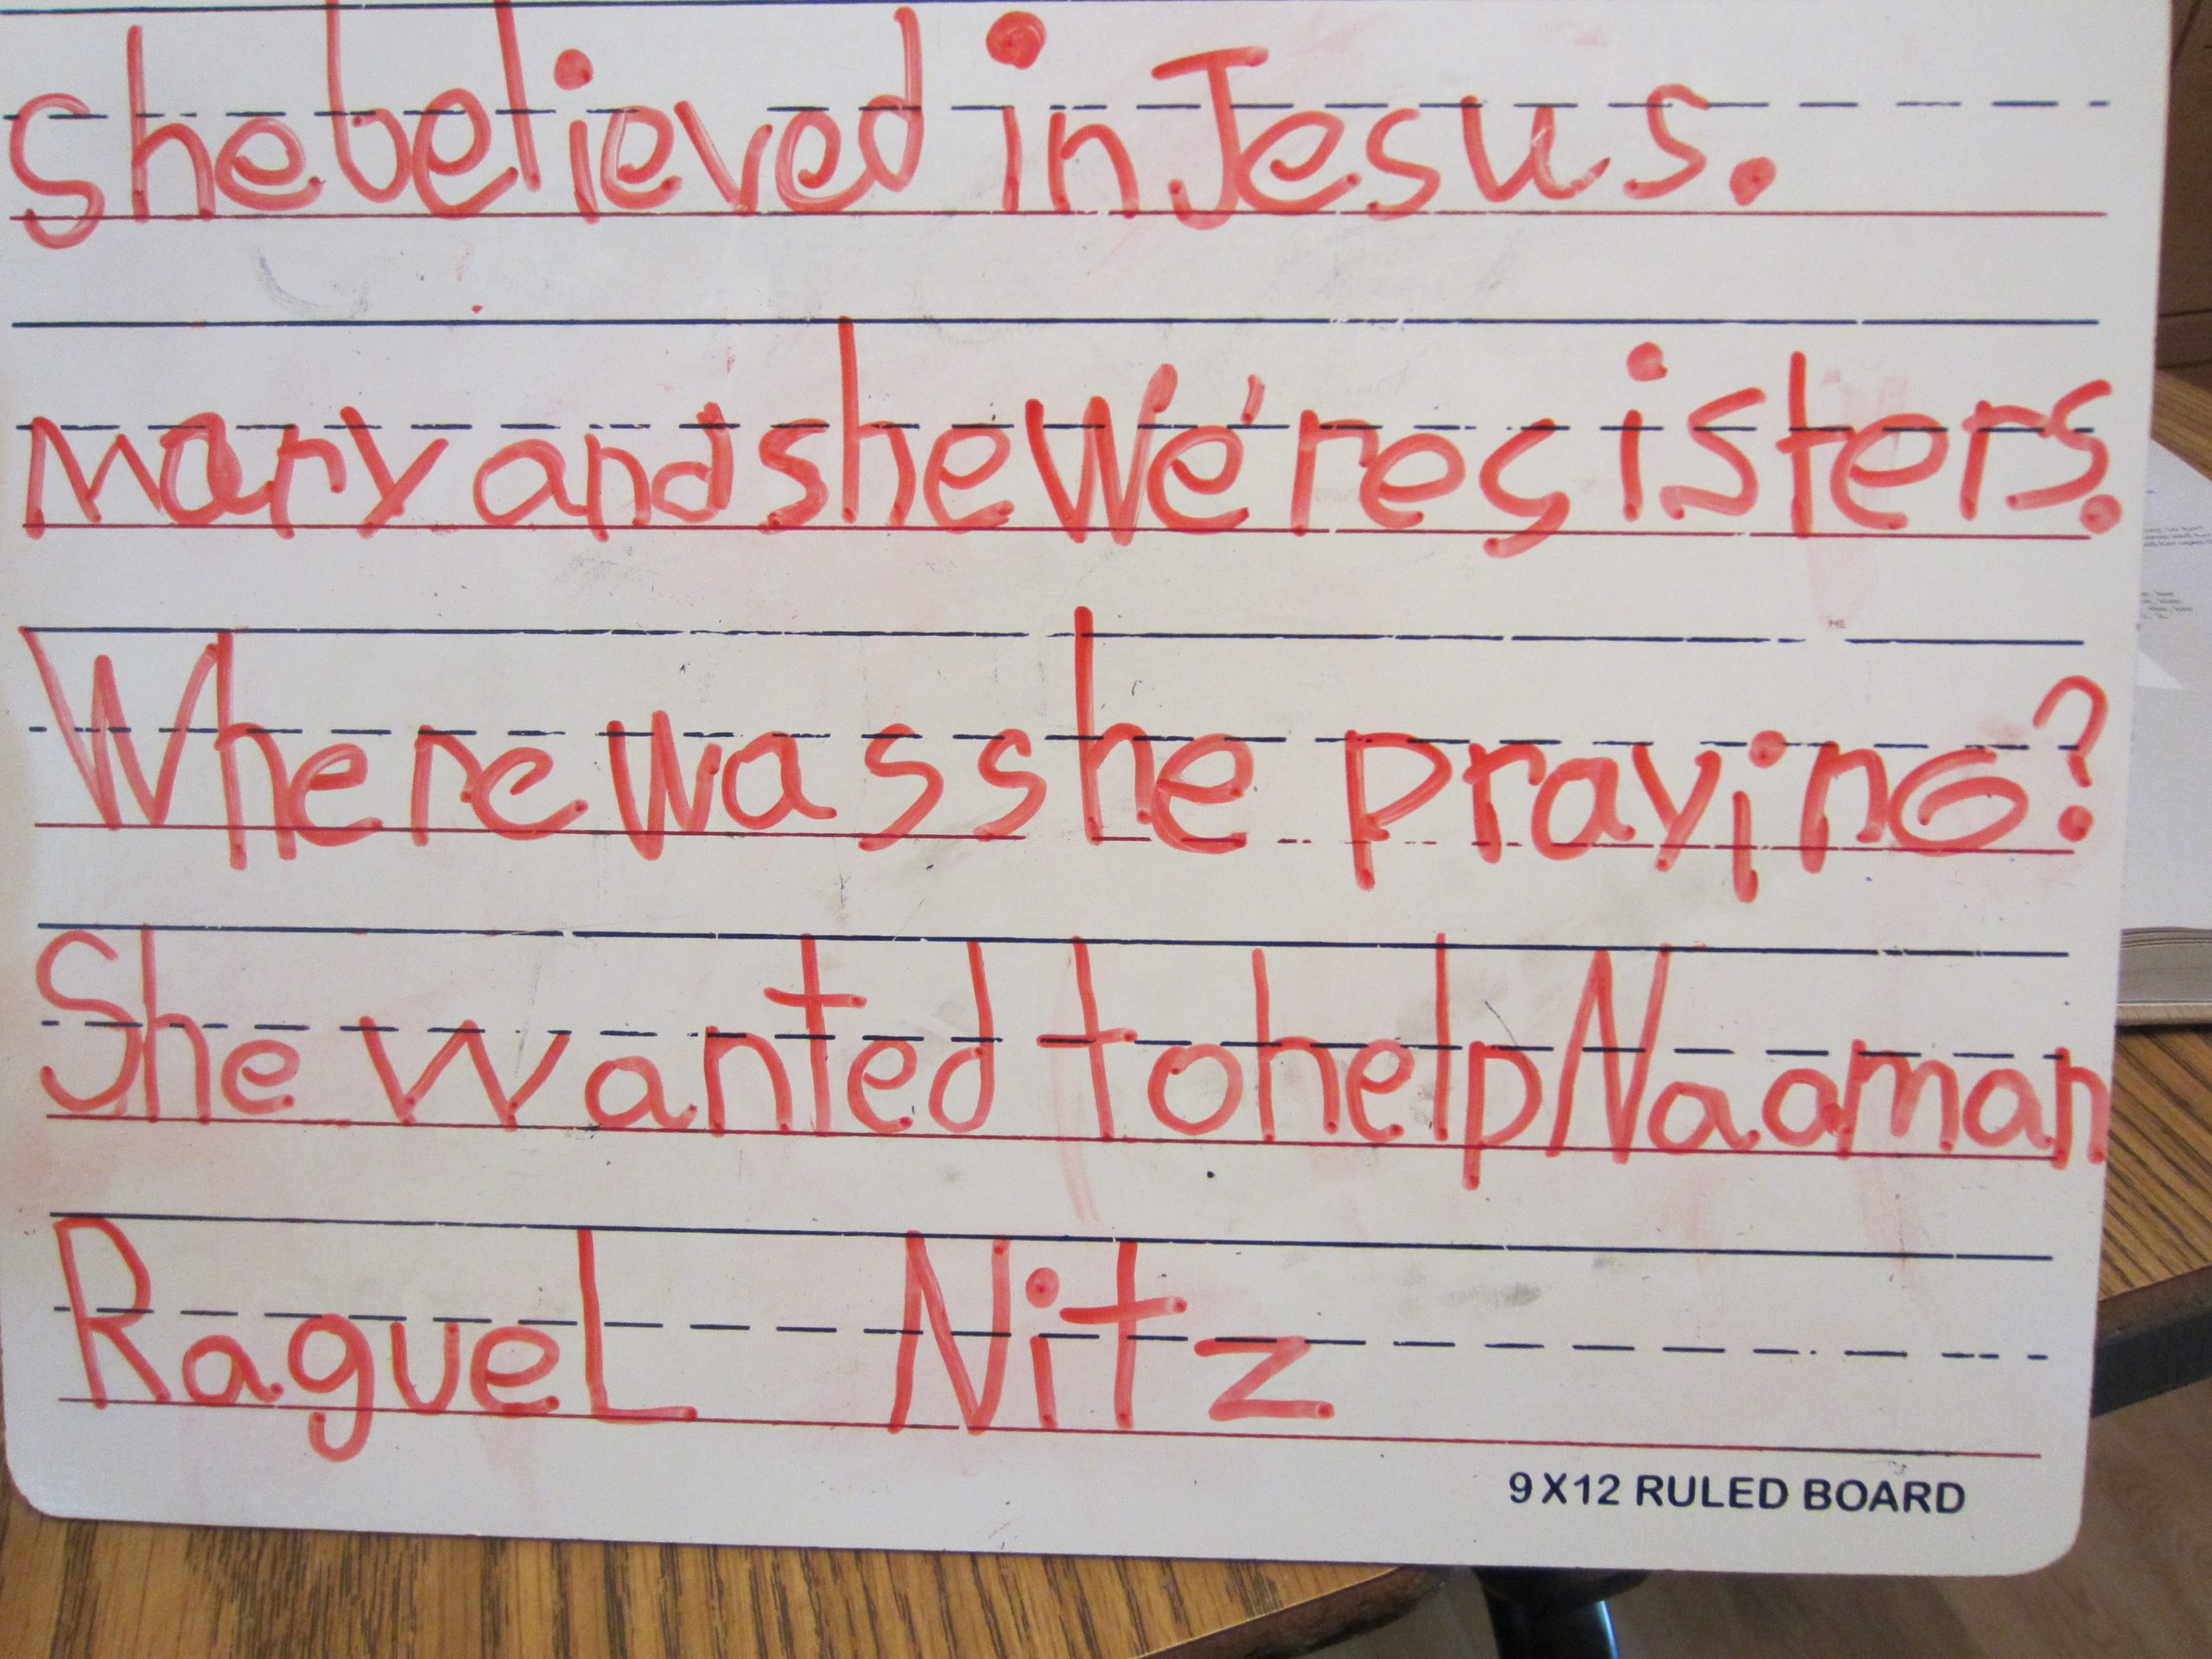 She believed in Jesus.
mary and she we're sisters.
Where was she praying?
She wanted to help Naaman
RagueL Nitz
9X12 RULED BOARD